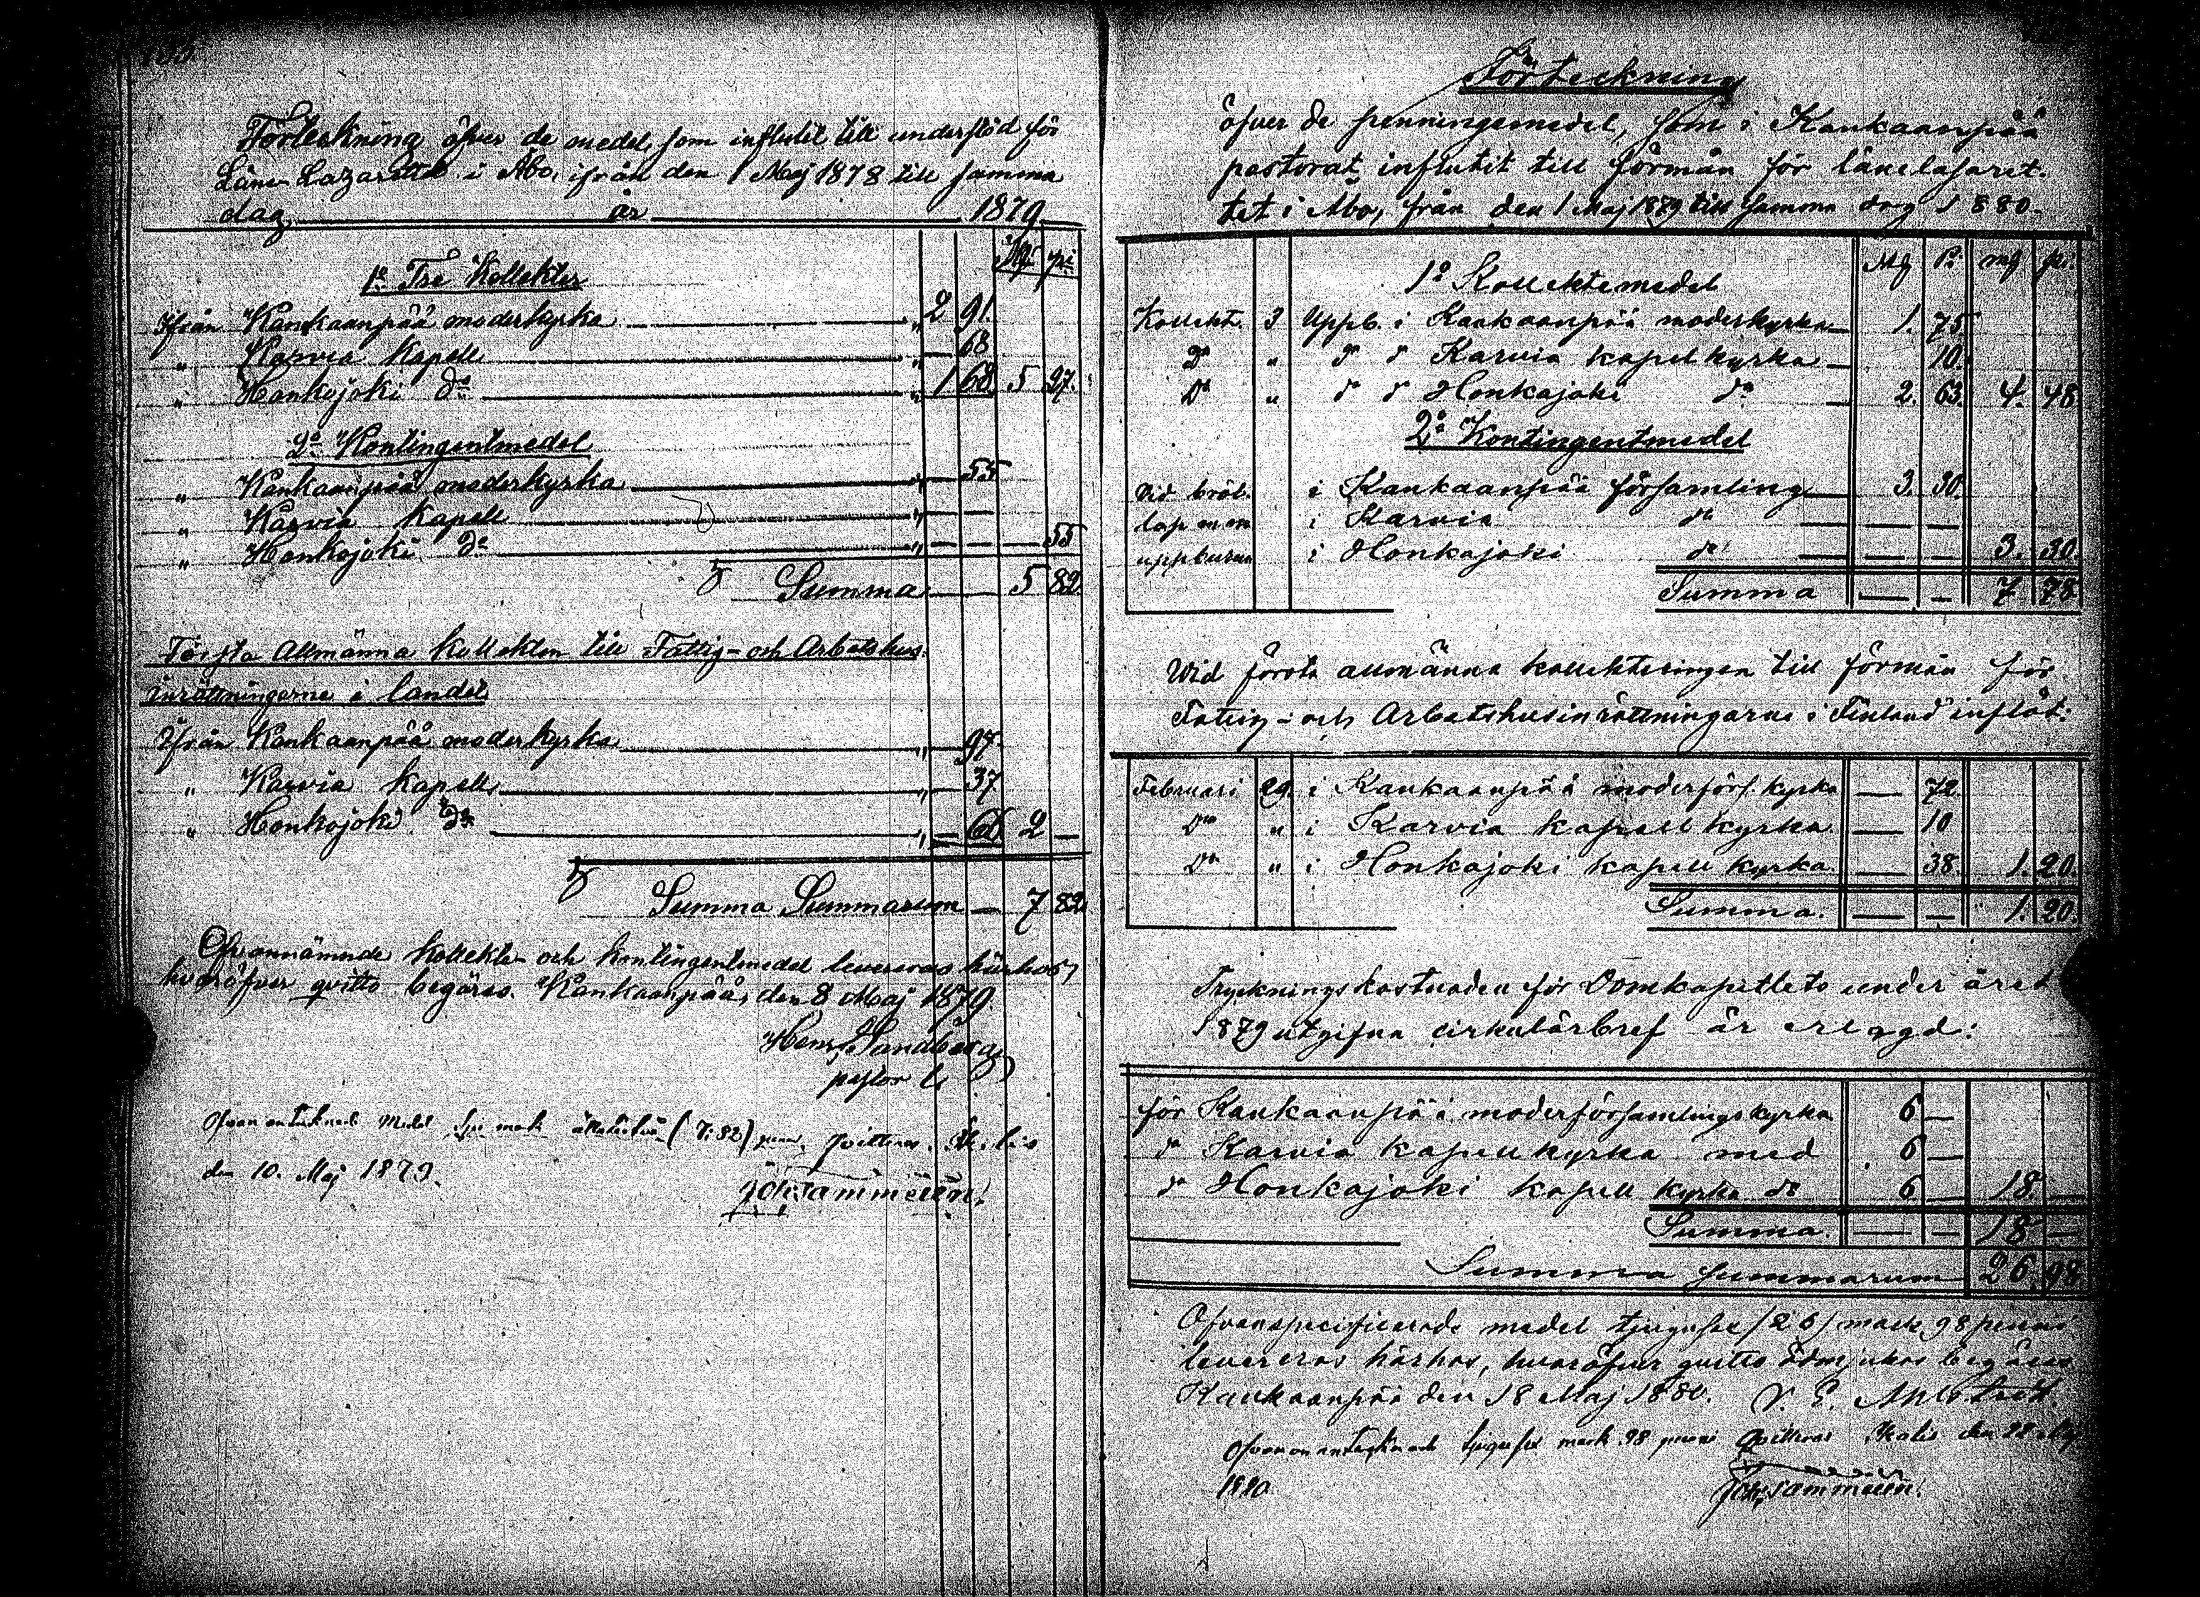 Förteckning öfver de medel, som influtit till understöd för
Läns-Lazarettet i Åbo, ifrån den 1 Maj 1878 till samma
dag år 1879
Mk pi
1o Tre Kollekter
Ifrån Kankaanpää moderkyrka " 2 91
" Karvia Kapell " — 68
" Honkojoki do " 1 68 5 27.
2o Kontingentmedel
" Kankaanpää moderkyrka " — 55
" Karvia Kapell " — —
" Honkojoki do " — — — 55
Summa — 5 82
Första Allmänna Kollekten till Fattig- och Arbetshus-
inrättningarne i landet
Ifrån Kankaanpää moderkyrka " — 97
" Karvia Kapell " — 37
" Honkojoki do " — 66 2 —
Summa Summarum — 7 82
Ofvannämnde Kollekt- och Kontingentmedel levereras härhos,
hvaröfver qvitto begäres. Kankaanpää, den 8 Maj 1879.
Henr. Sandberg
pastor
Ofvan antecknade medel sju mark åttatiotvå (7:82) penni, qvitteras.
den 10. Maj 1879.
Förteckning
öfver de penningemedel, som i Kankaanpää
pastorat influtit till förmån för länelasaret-
tet i Åbo, från den 1 Maj 1879 till samma dag 1880.
Mk Pi mk pi
1o Kollektemedel
Kollekt. 3 Uppb. i Kankaanpää moderkyrka — 1. 75
Do " do do Karvia kapellkyrka — 10.
Do " do do Honkajoki do — 2. 63. 4. 48
2o Kontingentmedel
Vid bröl- i Kankaanpää församling — 3. 30.
lop m.m. i Karvia do — — —
uppburna i Honkajoki do — — — 3. 30.
Summa — — 7 78
Vid första allmänna kollekteringen till förmån för
Fattig- och Arbetshusinrättningarne i Finland influtit:
Februari 29. i Kankaanpää moderförs. kyrka — 72.
Do " i Karvia kapell kyrka — 10
Do " i Honkajoki kapell kyrka — 38. 1. 20.
Summa. — — 1. 20.
Tryckningskostnaden för Domkapitlets under året
1879 utgifna cirkulärbref är erlagd:
för Kankaanpää moderförsamlings kyrka 6 —
do Karvia kapell kyrka med 6 —
do Honkajoki kapell kyrka do 6 — 18. —
Summa. — — 18 —
Summa summarum 26. 98
Ofvanspecificerade medel tjugusex (26) mark 98 penni
levereras härhos, hvaröfver qvitto ödmjukas begäres
Kankaanpää den 18 Maj 1880.
Ofvan antecknade tjugusex mark 98 penni qvitteras Ikalis den 28 Maj
1880